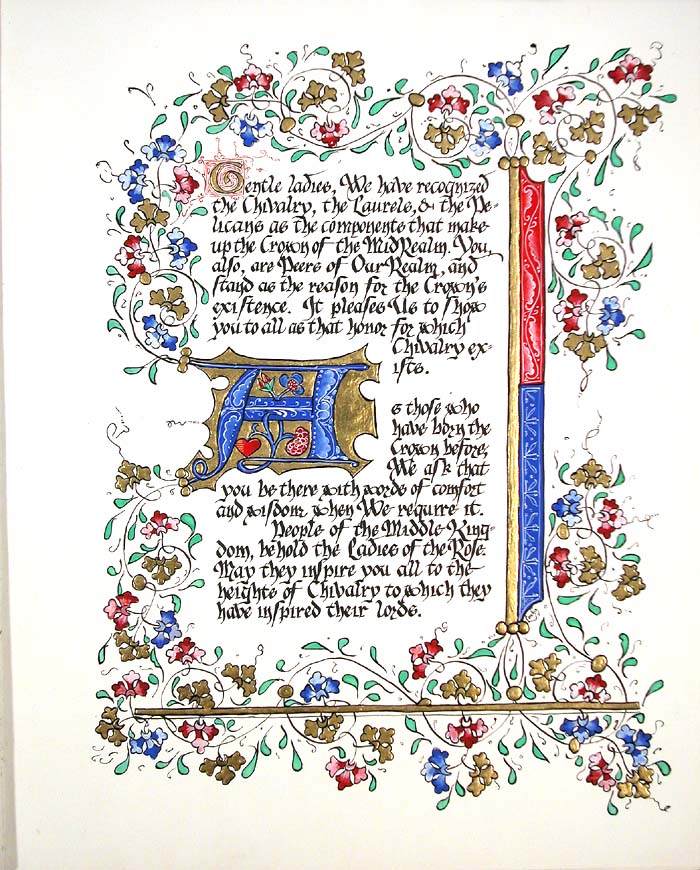 Gentle ladies, We have recognized
the Chivalry, the Laurels, & the Pe-
licans as the components that make-
up the Crown of the MidRealm. You,
also, are Peers of Our Realm, and
stand as the reason for the Crown's
existence. It pleases Us to show
you to all as that honor for which
Chivalry ex-
ists.
As those who
have born the
Crown before,
We ask that
you be there with words of comfort
and wisdom when We require it.
People of the Middle King-
dom, behold the Ladies of the Rose.
May they inspire you all to the
heights of Chivalry to which they
have inspired their lords.